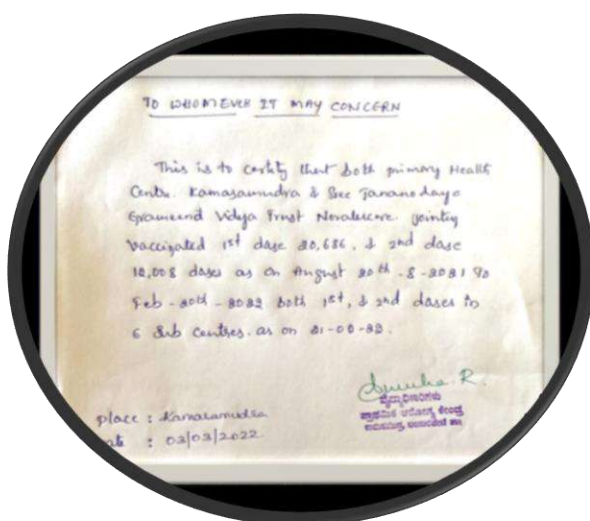 TO WHOMEVER IT MAY CONCERN
This is to certify that both primary Health
Centre. Kamasamudra & Sree Jananodaya
Grameend Vidya Trust Neralekere jointly
Vaccinated 1st dose 20,686, & 2nd dose
12,008 doses as on August 20th-8-2021 to
Feb-20th-2022 both 1st, & 2nd doses in
6 Sub Centres. as on 21-02-22.
R.
ವೈದ್ಯಾಧಿಕಾರಿಗಳು
ಪ್ರಾಥಮಿಕ ಆರೋಗ್ಯ ಕೇಂದ್ರ
ಕಾಮಸಮುದ್ರ,
place : Kamasamudra
ate : 03/03/2022